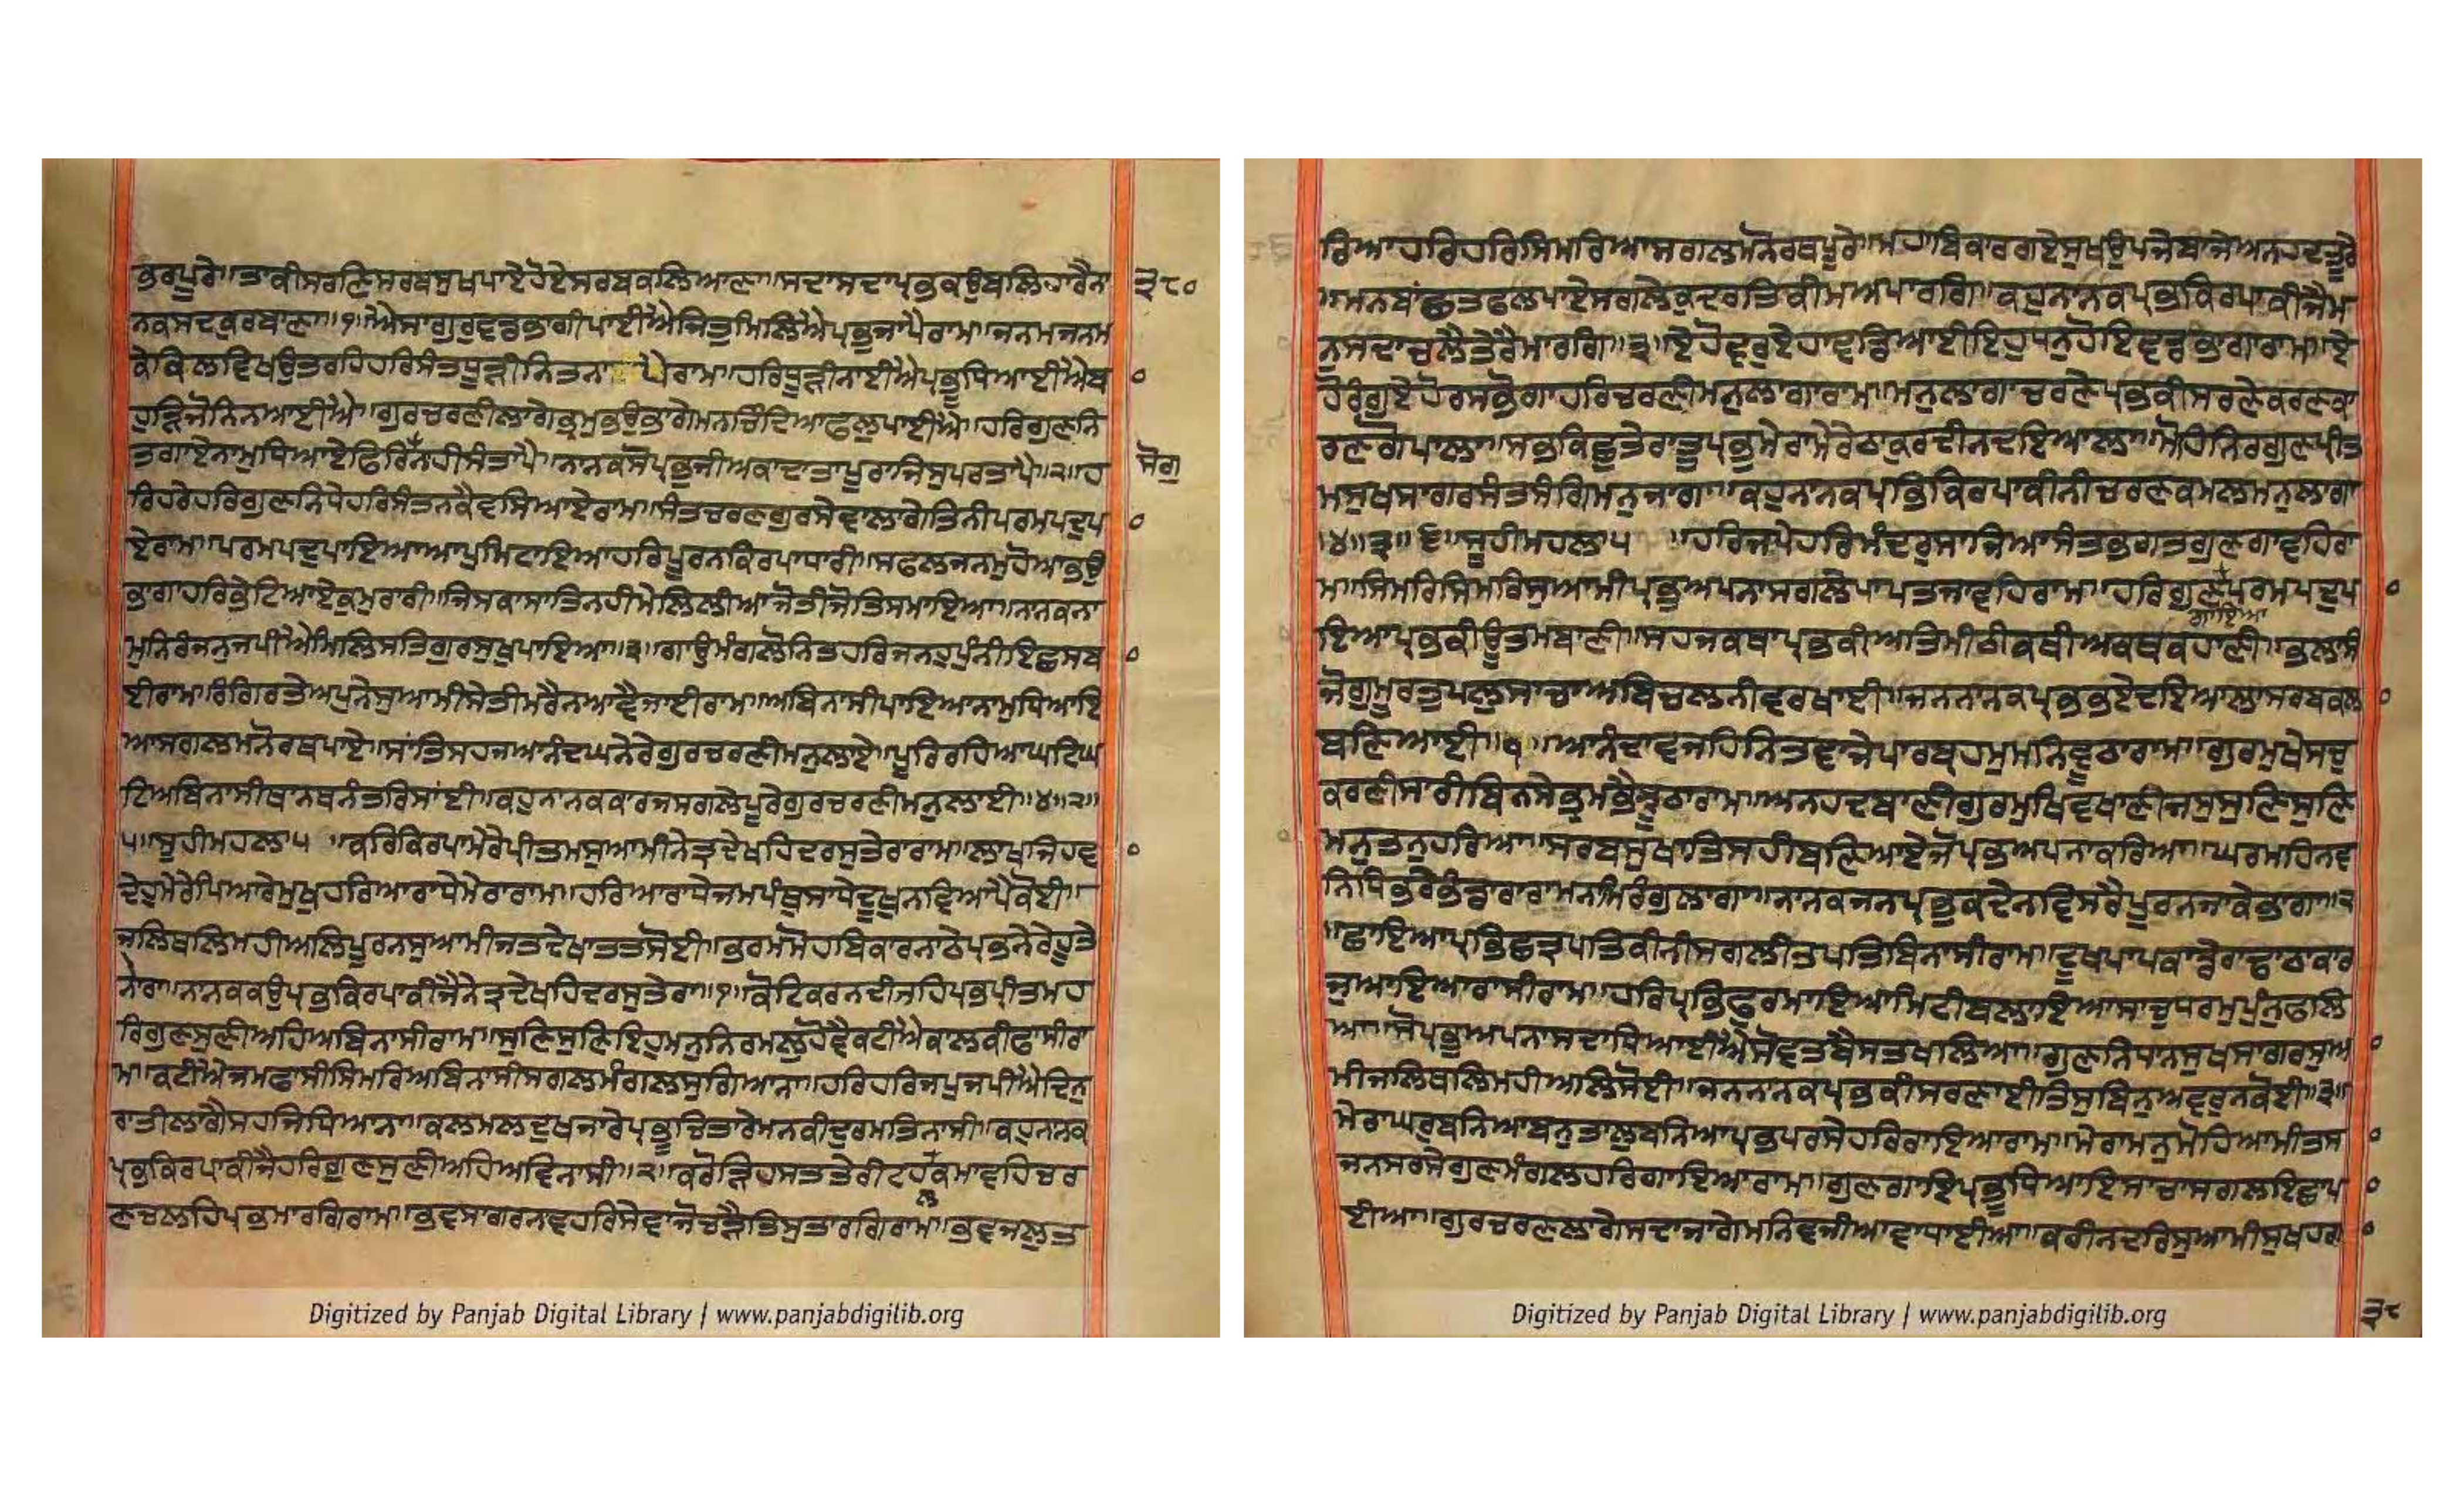 ਭਰਪੂਰੇ॥ਤਾਕੀਸਰਣਿਸਰਬਸੁਖਪਾਏਹੋਏਸਰਬਕਲਿਆਣਾ॥ਸਦਾਸਦਾਪ੍ਰਭਕਉਬਲਿਹਾਰੈਨਾ
੩੮੦
ਨਕਸਦਕੁਰਬਾਣਾ॥੧॥ਐਸਾਗੁਰੁਵਡਭਾਗੀਪਾਈਐਜਿਤੁਮਿਲਿਐਪ੍ਰਭੁਜਾਪੈਰਾਮ॥ਜਨਮਜਨਮ
ਕੇਕਿਲਵਿਖਉਤਰਹਿਹਰਿਸੰਤਧੂੜੀਨਿਤਨਾ ਪੈਰਾਮ॥ਹਰਿਧੂੜੀਨਾਈਐਪ੍ਰਭੂਧਿਆਈਐਬ
ਹੁੜਿਜੋਨਿਨਆਈਐ॥ਗੁਰਚਰਣੀਲਾਗੇਭ੍ਰਮੁਭਉਭਾਗੇਮਨਚਿੰਦਿਆਫਲੁਪਾਈਐ॥ਹਰਿਗੁਣਨਿ
ਤਗਾਏਨਾਮੁਧਿਆਏਫਿਰਿਨਹੀਸੰਤਾਪੈ॥ਨਾਨਕਸੋਪ੍ਰਭੁਜੀਅਕਾਦਾਤਾਪੂਰਾਜਿਸੁਪਰਤਾਪੈ॥੨॥ਹ
ਸੋਗੁ
ਰਿਹਰੇਹਰਿਗੁਣਨਿਧੇਹਰਿਸੰਤਨਕੈਵਸਿਆਏਰਾਮ॥ਸੰਤਚਰਣਗੁਰਸੇਵਾਲਾਗੇਤਿਨੀਪਰਮਪਦੁਪਾ
ਏਰਾਮ॥ਪਰਮਪਦੁਪਾਇਆਆਪੁਮਿਟਾਇਆਹਰਿਪੂਰਨਕਿਰਪਾਧਾਰੀ॥ਸਫਲਜਨਮੁਹੋਆਭਉ
ਭਾਗਾਹਰਿਭੇਟਿਆਏਕੁਮੁਰਾਰੀ॥ਜਿਸਕਾਸਾਤਿਨਹੀਮੇਲਿਲੀਆਜੋਤੀਜੋਤਿਸਮਾਇਆ॥ਨਾਨਕਨਾ
ਮੁਨਿਰੰਜਨੁਜਪੀਐਮਿਲਿਸਤਿਗੁਰਸੁਖੁਪਾਇਆ॥੩॥ਗਾਉਮੰਗਲੋਨਿਤਹਰਿਜਨਹੁਪੁੰਨੀਇਛਸਬ
ਈਰਾਮ॥ਰੰਗਿਰਤੇਅਪੁਨੇਸੁਆਮੀਸੇਤੀਮਰੈਨਆਵੈਜਾਈਰਾਮ॥ਅਬਿਨਾਸੀਪਾਇਆਨਾਮੁਧਿਆਇ
ਆਸਗਲਮਨੋਰਥਪਾਏ॥ਸਾਂਤਿਸਹਜਆਨੰਦਘਨੇਰੇਗੁਰਚਰਣੀਮਨੁਲਾਏ॥ਪੂਰਿਰਹਿਆਘਟਿਘ
ਟਿਅਬਿਨਾਸੀਥਾਨਥਨੰਤਰਿਸਾਂਈ॥ਕਹੁਨਾਨਕਕਾਰਜਸਗਲੇਪੂਰੇਗੁਰਚਰਣੀਮਨੁਲਾਈ॥੪॥੨॥
੫॥ਸੂਹੀਮਹਲਾ੫ ॥ਕਰਿਕਿਰਪਾਮੇਰੇਪ੍ਰੀਤਮਸੁਆਮੀਨੇਤ੍ਰਦੇਖਹਿਦਰਸੁਤੇਰਾਰਾਮ॥ਲਾਖਜਿਹਵ
ਦੇਹੁਮੇਰੇਪਿਆਰੇਮੁਖੁਹਰਿਆਰਾਧੇਮੇਰਾਰਾਮ॥ਹਰਿਆਰਾਧੇਜਮਪੰਥੁਸਾਧੇਦੂਖੁਨਵਿਆਪੈਕੋਈ॥
ਜਲਿਥਲਿਮਹੀਅਲਿਪੂਰਨਸੁਆਮੀਜਤਦੇਖਾਤਤਸੋਈ॥ਭਰਮਮੋਹਬਿਕਾਰਨਾਠੇਪ੍ਰਭਨੇਰੇਹੂਤੇ
ਨੇਰਾ॥ਨਾਨਕਕਉਪ੍ਰਭਕਿਰਪਾਕੀਜੈਨੇਤ੍ਰਦੇਖਹਿਦਰਸੁਤੇਰਾ॥੧॥ਕੋਟਿਕਰਨਦੀਜਹਿਪ੍ਰਭਪ੍ਰੀਤਮਹ
ਰਿਗੁਣਸੁਣੀਅਹਿਅਬਿਨਾਸੀਰਾਮ॥ਸੁਣਿਸੁਣਿਇਹੁਮਨੁਨਿਰਮਲੁਹੋਵੈਕਟੀਐਕਾਲਕੀਫਾਸੀਰਾ
ਮ॥ਕਟੀਐਜਮਫਾਸੀਸਿਮਰਿਅਬਿਨਾਸੀਸਗਲਮੰਗਲਸੁਗਿਆਨਾ॥ਹਰਿਹਰਿਜਪੁਜਪੀਐਦਿਨੁ
ਰਾਤੀਲਾਗੈਸਹਜਿਧਿਆਨਾ॥ਕਲਮਲਦੁਖਜਾਰੇਪ੍ਰਭੂਚਿਤਾਰੇਮਨਕੀਦੁਰਮਤਿਨਾਸੀ॥ਕਹੁਨਾਨਕ
ਪ੍ਰਭਕਿਰਪਾਕੀਜੈਹਰਿਗੁਣਸੁਣੀਅਹਿਅਵਿਨਾਸੀ॥੨॥ਕਰੋੜਿਹਸਤਤੇਰੀਟਹਕਮਾਵਹਿਚਰ
ਲ
ਣਚਲਹਿਪ੍ਰਭਮਾਰਗਿਰਾਮ॥ਭਵਸਾਗਰਨਾਵਹਰਿਸੇਵਾਜੋਚੜੈਤਿਸੁਤਾਰਗਿਰਾਮ॥ਭਵਜਲੁਤ
Digitized by Panjab Digital Library | www.panjabdigilib.org
ਰਿਆਹਰਿਹਰਿਸਿਮਰਿਆਸਗਲਮਨੋਰਥਪੂਰੇ॥ਮਹਾਬਿਕਾਰਗਏਸੁਖਉਪਜੇਬਾਜੇਅਨਹਦਤੂਰੇ
॥ਮਨਬਾਂਛਤਫਲਪਾਏਸਗਲੇਕੁਦਰਤਿਕੀਮਅਪਾਰਗਿ॥ਕਹੁਨਾਨਕਪ੍ਰਭਕਿਰਪਾਕੀਜੈਮ
ਨੁਸਦਾਚਲੈਤੇਰੈਮਾਰਗਿ॥੩॥ਏਹੋਵਰੁਏਹਾਵਡਿਆਈਇਹੁਧਨੁਹੋਇਵਡਭਾਗਾਰਾਮ॥ਏ
ਹੋਰੰਗੁਏਹੋਰਸਭੋਗਾਹਰਿਚਰਣੀਮਨੁਲਾਗਾਰਾਮ॥ਮਨੁਲਾਗਾਚਰਣੇਪ੍ਰਭਕੀਸਰਣੇਕਰਣਕਾ
ਰਣਗੋਪਾਲਾ॥ਸਭੁਕਿਛੁਤੇਰਾਤੂਪ੍ਰਭੁਮੇਰਾਮੇਰੇਠਾਕੁਰਦੀਨਦਇਆਲਾ॥ਮੋਹਿਨਿਰਗੁਣਪ੍ਰੀਤ
ਮਸੁਖਸਾਗਰਸੰਤਸੰਗਿਮਨੁਜਾਗਾ॥ਕਹੁਨਾਨਕਪ੍ਰਭਿਕਿਰਪਾਕੀਨੀਚਰਣਕਮਲਮਨੁਲਾਗਾ
॥੪॥੩॥੬॥ਸੂਹੀਮਹਲਾ੫ ॥ਹਰਿਜਪੇਹਰਿਮੰਦਰੁਸਾਜਿਆਸੰਤਭਗਤਗੁਣਗਾਵਹਿਰਾ
ਮ॥ਸਿਮਰਿਸਿਮਰਿਸੁਆਮੀਪ੍ਰਭੁਅਪਨਾਸਗਲੇਪਾਪਤਜਾਵਹਿਰਾਮ॥ਹਰਿਗੁਣਪਰਮਪਦੁਪਾ
ਗਾਇਆ
ਇਆਪ੍ਰਭਕੀਊਤਮਬਾਣੀ॥ਸਹਜਕਥਾਪ੍ਰਭਕੀਅਤਿਮੀਠੀਕਥੀਅਕਥਕਹਾਣੀ॥ਭਲਾਸੰ
ਜੋਗੁਮੂਰਤੁਪਲੁਸਾਚਾਅਬਿਚਲਨੀਵਰਖਾਈ॥ਜਨਨਾਨਕਪ੍ਰਭਭਏਦਇਆਲਾਸਰਬਕਲ
ਬਣਿਆਈ॥੧॥ਆਨੰਦਾਵਜਹਿਨਿਤਵਾਜੇਪਾਰਬ੍ਰਹਮੁਮਨਿਵੂਠਾਰਾਮ॥ਗੁਰਮੁਖੇਸਚੁ
ਕਰਣੀਸਾਰੀਬਿਨਸੇਭ੍ਰਮਭੈਝੂਠਾਰਾਮ॥ਅਨਹਦਬਾਣੀਗੁਰਮੁਖਿਵਖਾਣੀਜਸੁਸੁਣਿਸੁਣਿ
ਮਨੁਤਨੁਹਰਿਆ॥ਸਰਬਸੁਖਾਤਿਸਹੀਬਣਿਆਏਜੋਪ੍ਰਭਿਅਪਨਾਕਰਿਆ॥ਘਰਮਹਿਨਵ
ਨਿਧਿਭਰੇਭੰਡਾਰਾਰਾਮਨਾਮਿਰੰਗੁਲਾਗਾ॥ਨਾਨਕਜਨਪ੍ਰਭੁਕਦੇਨਵਿਸਰੈਪੂਰਨਜਾਕੇਭਾਗਾ॥੨
॥ਛਾਇਆਪ੍ਰਭਿਛਤ੍ਰਪਤਿਕੀਨੀਸਗਲੀਤਪਤਿਬਿਨਾਸੀਰਾਮ॥ਦੂਖਪਾਪਕਾਡੇਰਾਢਾਠਾਕਾਰ
ਜੁਆਇਆਰਾਸੀਰਾਮ॥ਹਰਿਪ੍ਰਭਿਫੁਰਮਾਇਆਮਿਟੀਬਲਾਇਆਸਾਚੁਧਰਮੁਪੁੰਨੁਫਲਿ
ਆ॥ਸੋਪ੍ਰਭੁਅਪਨਾਸਦਾਧਿਆਈਐਸੋਵਤਬੈਸਤਖਲਿਆ॥ਗੁਣਨਿਧਾਨਸੁਖਸਾਗਰਸੁਆ
ਮੀਜਲਿਥਲਿਮਹੀਅਲਿਸੋਈ॥ਜਨਨਾਨਕਪ੍ਰਭਕੀਸਰਣਾਈਤਿਸੁਬਿਨੁਅਵਰੁਨਕੋਈ॥੩॥
ਮੇਰਾਘਰੁਬਨਿਆਬਨੁਤਾਲੁਬਨਿਆਪ੍ਰਭਪਰਸੇਹਰਿਰਾਇਆਰਾਮ॥ਮੇਰਾਮਨੁਮੋਹਿਆਮੀਤਸ
ਜਨਸਰਸੇਗੁਣਮੰਗਲਹਰਿਗਾਇਆਰਾਮ॥ਗੁਣਗਾਇਪ੍ਰਭੂਧਿਆਇਸਾਚਾਸਗਲਇਛਾਪਾ
ਈਆ॥ਗੁਰਚਰਣਲਾਗੇਸਦਾਜਾਗੇਮਨਿਵਜੀਆਵਾਧਾਈਆ॥ਕਰੀਨਦਰਿਸੁਆਮੀਸੁਖਹਗਾ
੩੮
Digitized by Panjab Digital Library | www.panjabdigilib.org